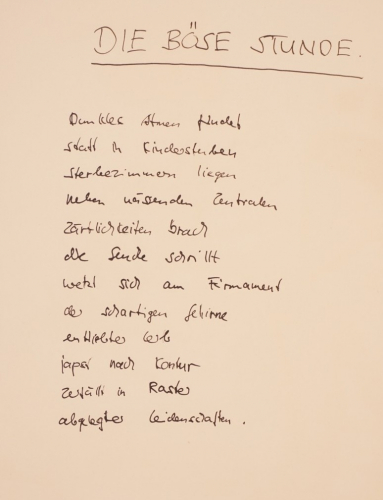 DIE BÖSE STUNDE.
Dunkles Atmen findet
statt in Kinderstuben
sterbezimmern liegen
neben nässenden Zentralen
Zärtlichkeiten brach
die Sende schrillt
wetzt sich am Firmament
der schartigen Gehirne
entblößter Leib
japst nach Kontur
zerfällt in Raster
abgelegter Leidenschaften.